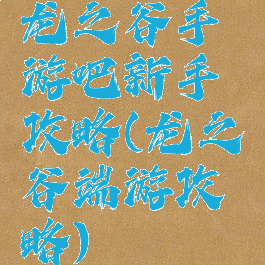 龙之谷手
游吧新手
攻略(龙之
谷端游攻
略)